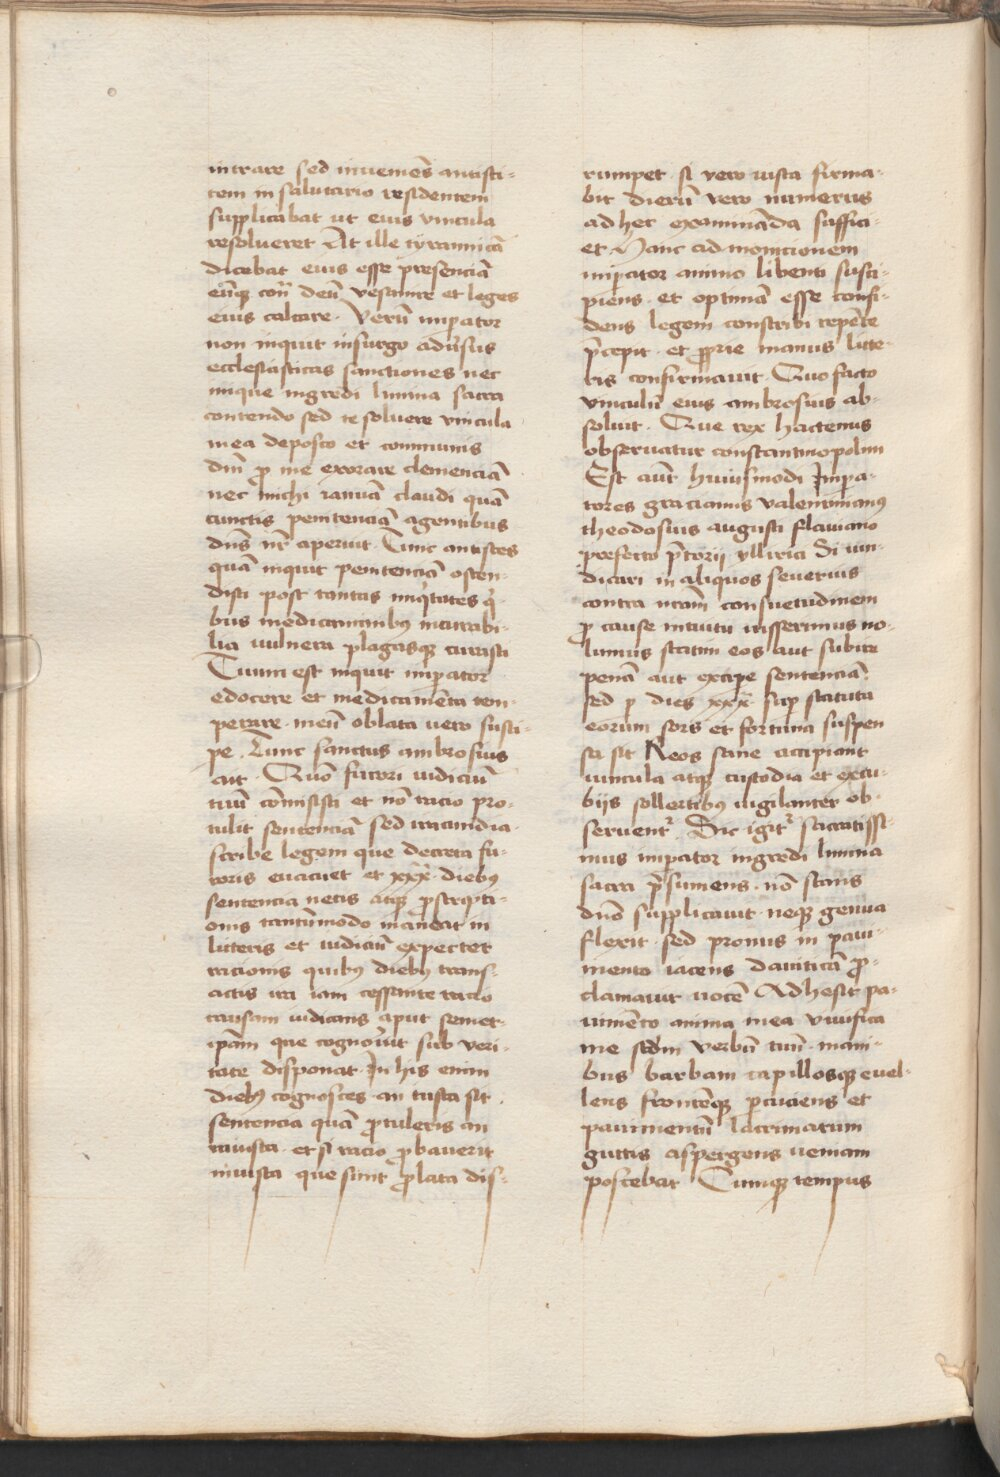 intrare sed inueniens̄ antisti-
tem in salutario residentem
supplicabat ut eius vincula
resolueret At ille tyrannicā
dicebat eius esse presenciā
eūq͛ con̄ deū vesanire et leges
eius calcare · Verū impator
non inquit insurgo adūsus
ecclesiasticas sanctiones nec
inique ingredi limina sacra
contendo sed te soluere vincula
mea deposco et communis
dīn p̄ me exorare clemenciā
nec michi ianuā claudi quā
cunctis penitenciā agentibus
dn̄s nr̄ aperuit · Tunc antistes
quā inquit penitenciā osten-
disti post tantas iniq̄tates q̄-
bus medicaminibꝫ incurabi-
lia vulnera plagasq͛ curasti
Tuum est inquit imperator
edocere et medicamēta tem-
perare · meū oblata uero susci-
pe · Tunc sanctus ambrosius
ait · Quō furori iudiciū
tuū cōmisisti et nō racio pro-
tulit sentenciā sed iracundia ·
scribe legem que decreta fu-
roris euacuet et xxx · diebꝫ
sentencia necis atq͛ pscripti-
onis tantūmodo maneat in
litteris et iudiciū expectet
racionis quibꝫ diebꝫ trans-
actis ira iam cessante racio
causam iudicans aput semet-
ipām que cognouit sub veri-
tate disponat · In his enim
diebꝫ cognosces an iusta sit ·
sentencia quā ptuleris an
iniusta · et si racio pbauerit
iniusta que sunt plata dis-
rumpet · si vero iusta firma-
bit dierū vero numerus
ad hec examināda suffici-
et Hanc ad monicionem
impator animo libenti susci-
piens · et optimā esse confi-
dens legem conscribi repēte
p̄cepit · et pprie manus litte-
ris confirmauit · Quo facto
vinculū eius ambrosius ab-
soluit · Que rex hactenus
obseruatur constantinopolim
Est aūt huiusmodi Impa-
tores gracianus valentinianꝰ
theodosius augusti flauiano
prefecto p̄torij yllirici Si uin-
dicari in aliquos seuerius
contra nrām consuetudinem
p̄ cause intuitu iusserimus no-
lumus statim eos aut subire
penā aut excipe sentenciā ·
sed p dies xxx · sup statuta
eorum sors et fortuna suspen
sa sit Reos sane accipiant
vincula atq͛ custodia et excu-
bijs sollertibꝫ uigilanter ob-
seruentᷣ · Sic igitᷣ sacratissi-
mus impator ingredi limina
sacra p̄sumens · nō stans
dn̄o supplicauit · neq͛ genua
flexit · sed pronus in paui-
mento iacens dauiticā p̄-
clamauit uocē Adhesit pa-
uimēto anima mea viuifica
me scd̄m verbū tuū · mani-
bus barbam capillosq͛ euel-
lens frontēq͛ pcuciens et
pauimentū lacrimarum
guttis aspergens ueniam
poscebat Cumq͛ tempus